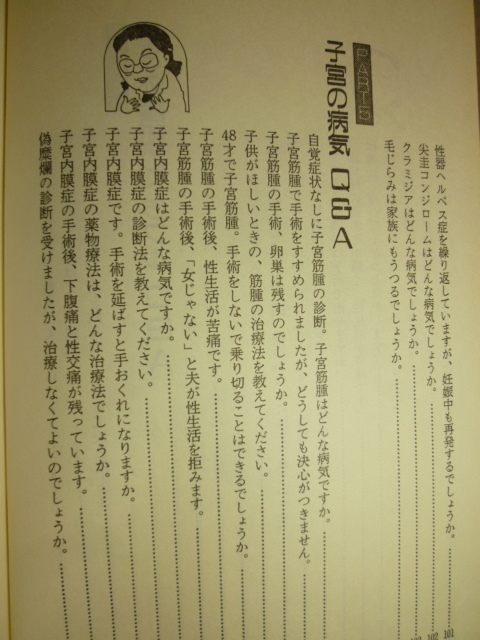 性器ヘルペス症を繰り返していますが、妊娠中も再発するでしょうか。 101
尖圭コンジロームはどんな病気でしょうか。 102
クラミジアはどんな病気でしょうか。
毛じらみは家族にもうつるでしょうか。
PART5
子宮の病気 Q&A
自覚症状なしに子宮筋腫の診断。子宮筋腫はどんな病気ですか。
子宮筋腫で手術をすすめられましたが、どうしても決心がつきません。
子宮筋腫の手術、卵巣は残すのでしょうか。
子供がほしいときの、筋腫の治療法を教えてください。
48才で子宮筋腫。手術をしないで乗り切ることはできるでしょうか。
子宮筋腫の手術後、性生活が苦痛です。
子宮筋腫の手術後、「女じゃない」と夫が性生活を拒みます。
子宮内膜症はどんな病気ですか。
子宮内膜症の診断法を教えてください。
子宮内膜症です。手術を延ばすと手おくれになりますか。
子宮内膜症の薬物療法は、どんな治療法でしょうか。
子宮内膜症の手術後、下腹痛と性交痛が残っています。
偽糜爛の診断を受けましたが、治療しなくてよいのでしょうか。